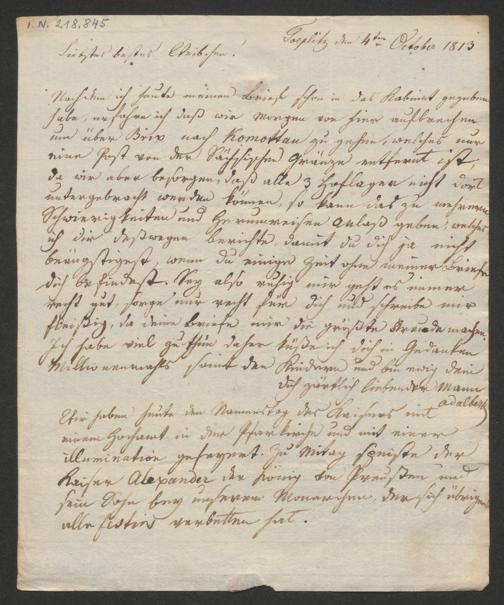 I. N. 218.845
Toeplitz den 4ten October 1813
Liebstes bestes Weibchen!
Nachdem ich heute meinen Brief schon in das Kabinet gegeben
habe, erfahre ich daß wir morgen von hier aufbrechen
um über Brix nach Komottau zu gehen, welches nur
eine Post von der Sächsischen Gränze entfernt ist,
da wir aber besorgen, daß alle 3 Hoflager nicht dort
untergebracht werden können, so kann das zu mehreren
Schwierigkeiten und Anlaß geben, welches
ich dir deßwegen berichte, damit du dich ja nicht
beängstigest, wenn du einige Zeit ohne meiner Briefe
dich befindest. Sey also ruhig mir geht es immer
recht gut, sorge nur recht für dich und schreibe mir
fleißig, da deine Briefe mir die größte Freude machen.
Ich habe viel zu thun daher küße ich dich in Gedanken
Millionenmahls samt den Kindern und bin ewig dein
dich zärtlich liebender Mann
Adalbert
Wir haben heute den Namenstag des Kaisers mit
einem Hochamt in der Pfarrkirche und mit einer
illumination gefeyert. Zu Mitag speiste der
Kaiser Alexander der König von Preußen und
sein Sohn bey unserem Monarchen, der sich übrigens
alle verbetten hat.